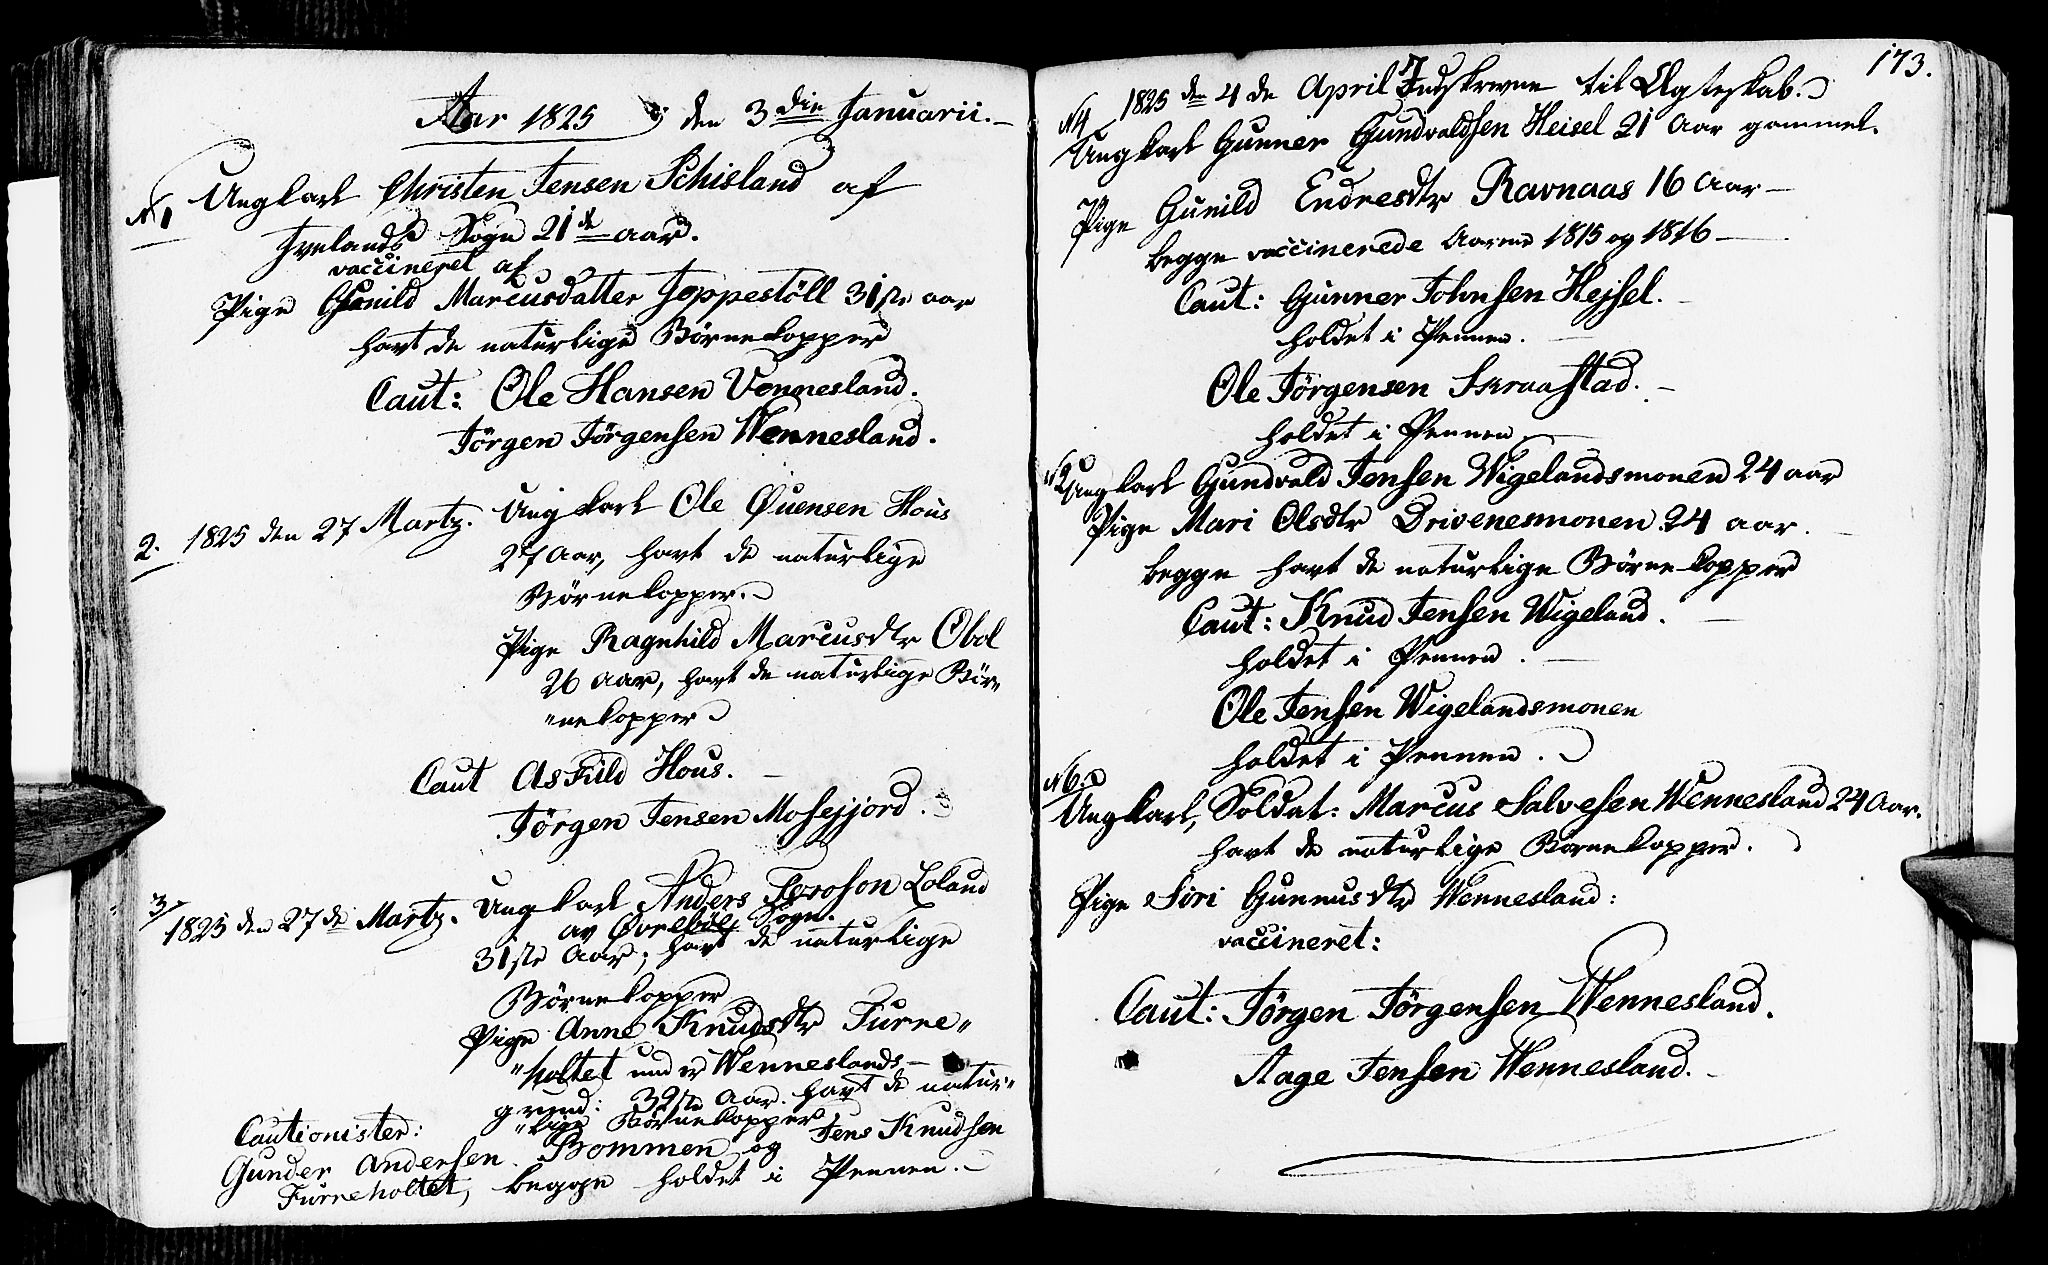 Aar 1825 den 3die Januarii.
N 1 Ungkarl Christen Jensen Schisland af
Ivelands Sogn 21de aar.
vaccineret af
Pige Gunild Marcusdatter Joppestöll 31ste aar
havt de naturlige Börnekopper
Caut: Ole Hansen Vennesland.
Jörgen Jörgensen Wennesland.
2. 1825 den 27 Martz. Ungkarl Ole Øuensen Hous
27 Aar, havt de naturlige
Börnekopper.
Pige Ragnhild Marcusdtr Obel
26 Aar, havt de naturlige Bör„
„nekopper
Caut Asfüld Hous.
Jörgen Jensen Mosejjord.
3/ 1825 den 27de Martz. Ungkarl Anders Loland
av Øvreböe Sogn.
31ste Aar, havt de naturlige
Börnekopper
Pige Anne Knudsdtr Furre„
„holtet under Wenneslands
grund: 39te Aar. havt de natur„
„lige Börnekopper
Cautionister:
Gunder Andersen Bommen og Jens Knudsen
Furreholtet, begge holdet i Pennen.
173.
N4 1825 den 4de April Indskrevne til Ægteskab.
Ungkarl Gunner Gundvaldsen Heisel 21 Aar gammel.
Pige Gunild Endresdtr Ravnaas 16 Aar
begge vaccinerede Aarene 1815 og 1816
Caut: Gunner Johnsen Hejsel.
holdet i Pennen.
Ole Jörgensen Skraastad.
holdet i Pennen
Ungkarl Gundvald Jensen Wigelandsmonen 24 aar
Pige Mari Olsdtr Drivenesmonen 24 aar.
begge havt de naturlige Börnekopper
Caut: Knud Jensen Wigeland.
holdet i Pennen.
Ole Jensen Wigelandsmonen
holdet i Pennen.
N6.
Ungkarl, Soldat: Marcus Salvesen Wennesland 24 Aar.
havt de naturlige Börnekopper.
Pige Siri Gunnusdtr Wennesland:
vaccineret:
Caut: Jörgen Jörgensen Wennesland.
Aage Jensen Wennesland.